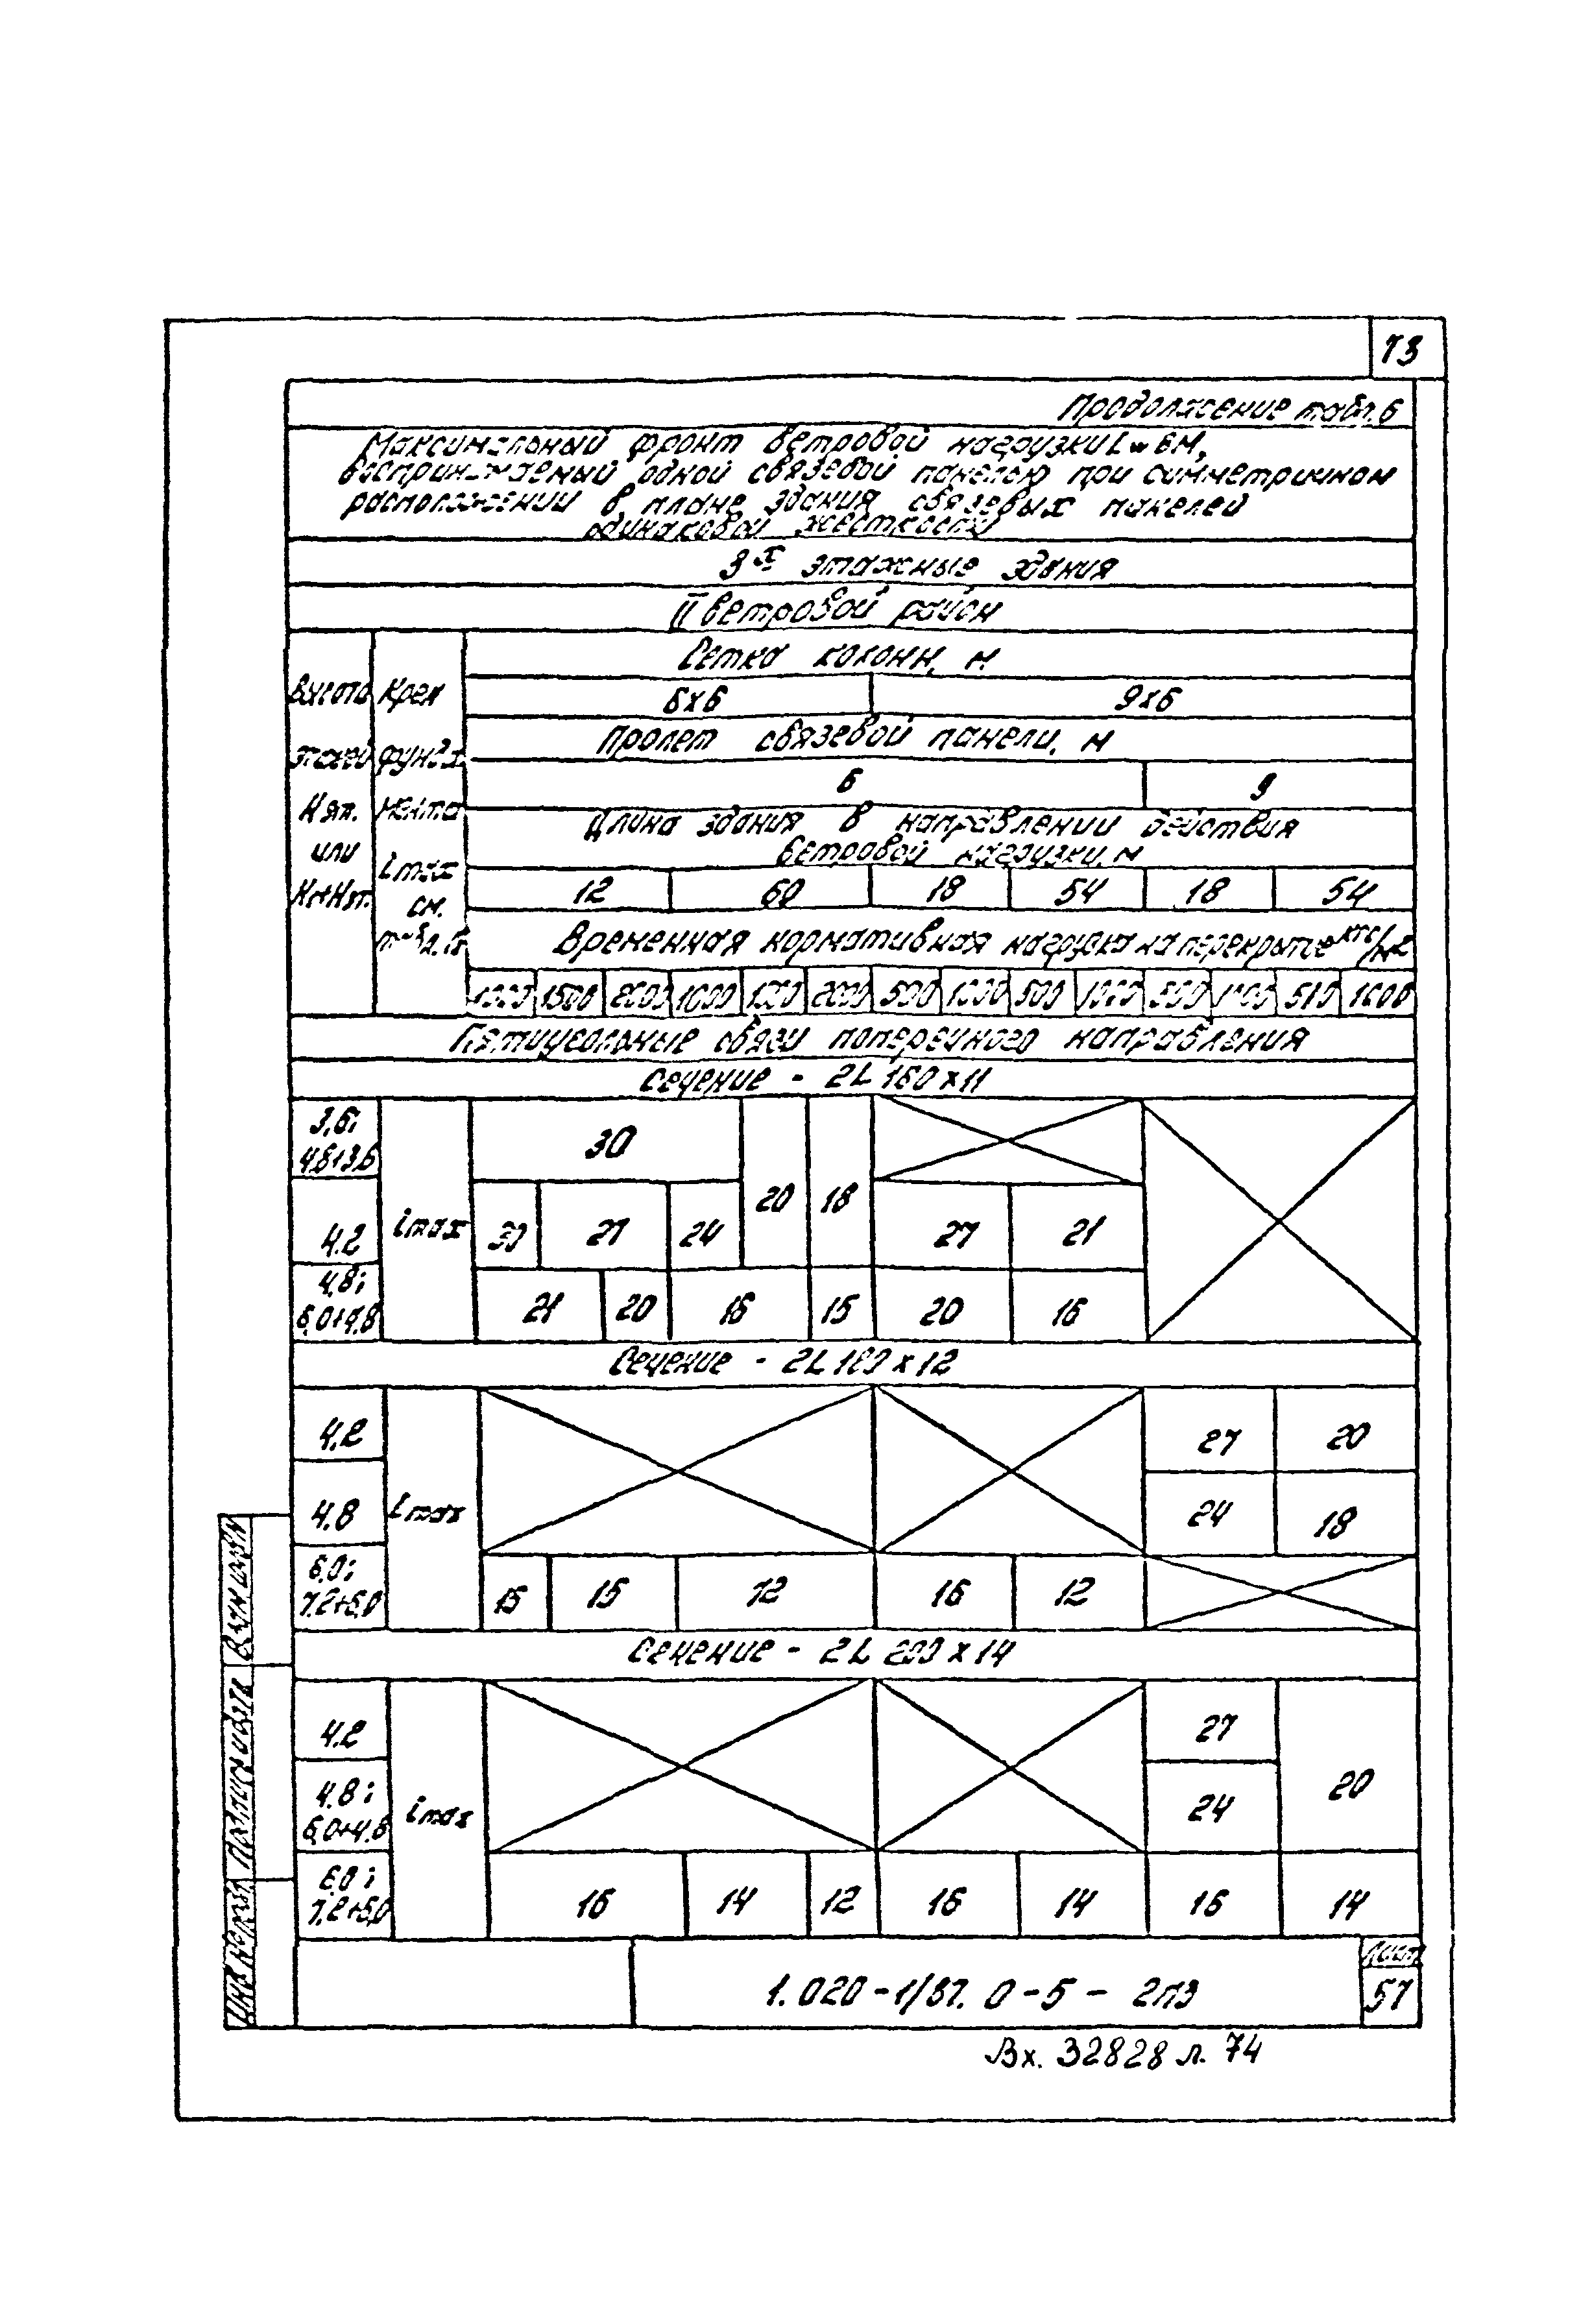 73
Продолжение табл. 6
Максимальный фронт ветровой нагрузки Lw в м,
воспринимаемый одной связевой панелью при симметричном
расположении в плане здания связевых панелей
одинаковой жесткости
3х этажные здания
II ветровой район
Высота этажей Нэт. или Нп+Нэт.
Крен фундамента imax см. табл.
Сетка колонн, м
6x6 9x6
Пролет связевой панели, м
6 9
Длина здания в направлении действия
ветровой нагрузки, м
12 60 18 54 18 54
Временная нормативная нагрузка на перекрытие кгс/м2
1000 1500 2000 1000 1500 2000 500 1000 500 1000 500 1000 500 1000
Пятиугольные связи поперечного направления
Сечение - 2L 160x11
3,6; 4,8+3,6
imax
30 20 18
4.2
30 27 24 27 21
4,8; 6,0+4,8
21 20 16 15 20 16
Сечение - 2L 180x12
4.2
imax
27 20
4.8
24 18
6,0; 7.2+6,0
15 12 16 12
Сечение - 2L 200x14
4.2
imax
27 20
4.8; 6,0+4.8
24
6.0; 7.2+6,0
16 14 12 16 14 16 14
1.020-1/87. 0-5 - 2ПЗ
Лист
57
Вх. 32828 л. 74
Инв. № подл. Подпись и дата Взам. инв. №